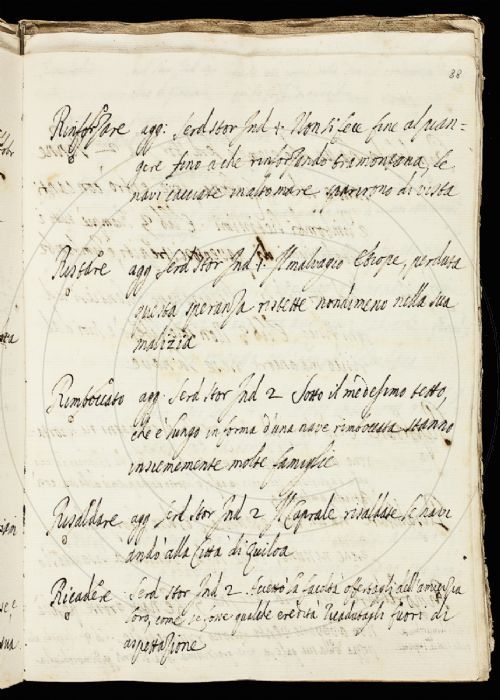 88
Rinforzare agg: Serd Stor Ind 1. Non si fece fine al pian-
gere fino a che rinforzando tramontana, le
navi cacciate in alto mare sparirono di vista
Ristare agg Serd Stor Ind 1. Il malvagio Etiope, perduta
questa speranza ristette nondimeno nella sua
malizia
Rimboccato agg. Serd Stor Ind 2 Sotto il medesimo tetto,
che è lungo in forma d'una nave rimboccata stanno
insiememente molte famiglie
Risaldare agg Serd Stor Ind 2 Il Caprale risaldate le navi
andò alla Città di Quiloa
Ricadere Serd Stor Ind 2 Accettò la facoltà offertagli dall'amicizia
loro, come se fosse qualche eredità ricadutagli fuori di
aspettazione